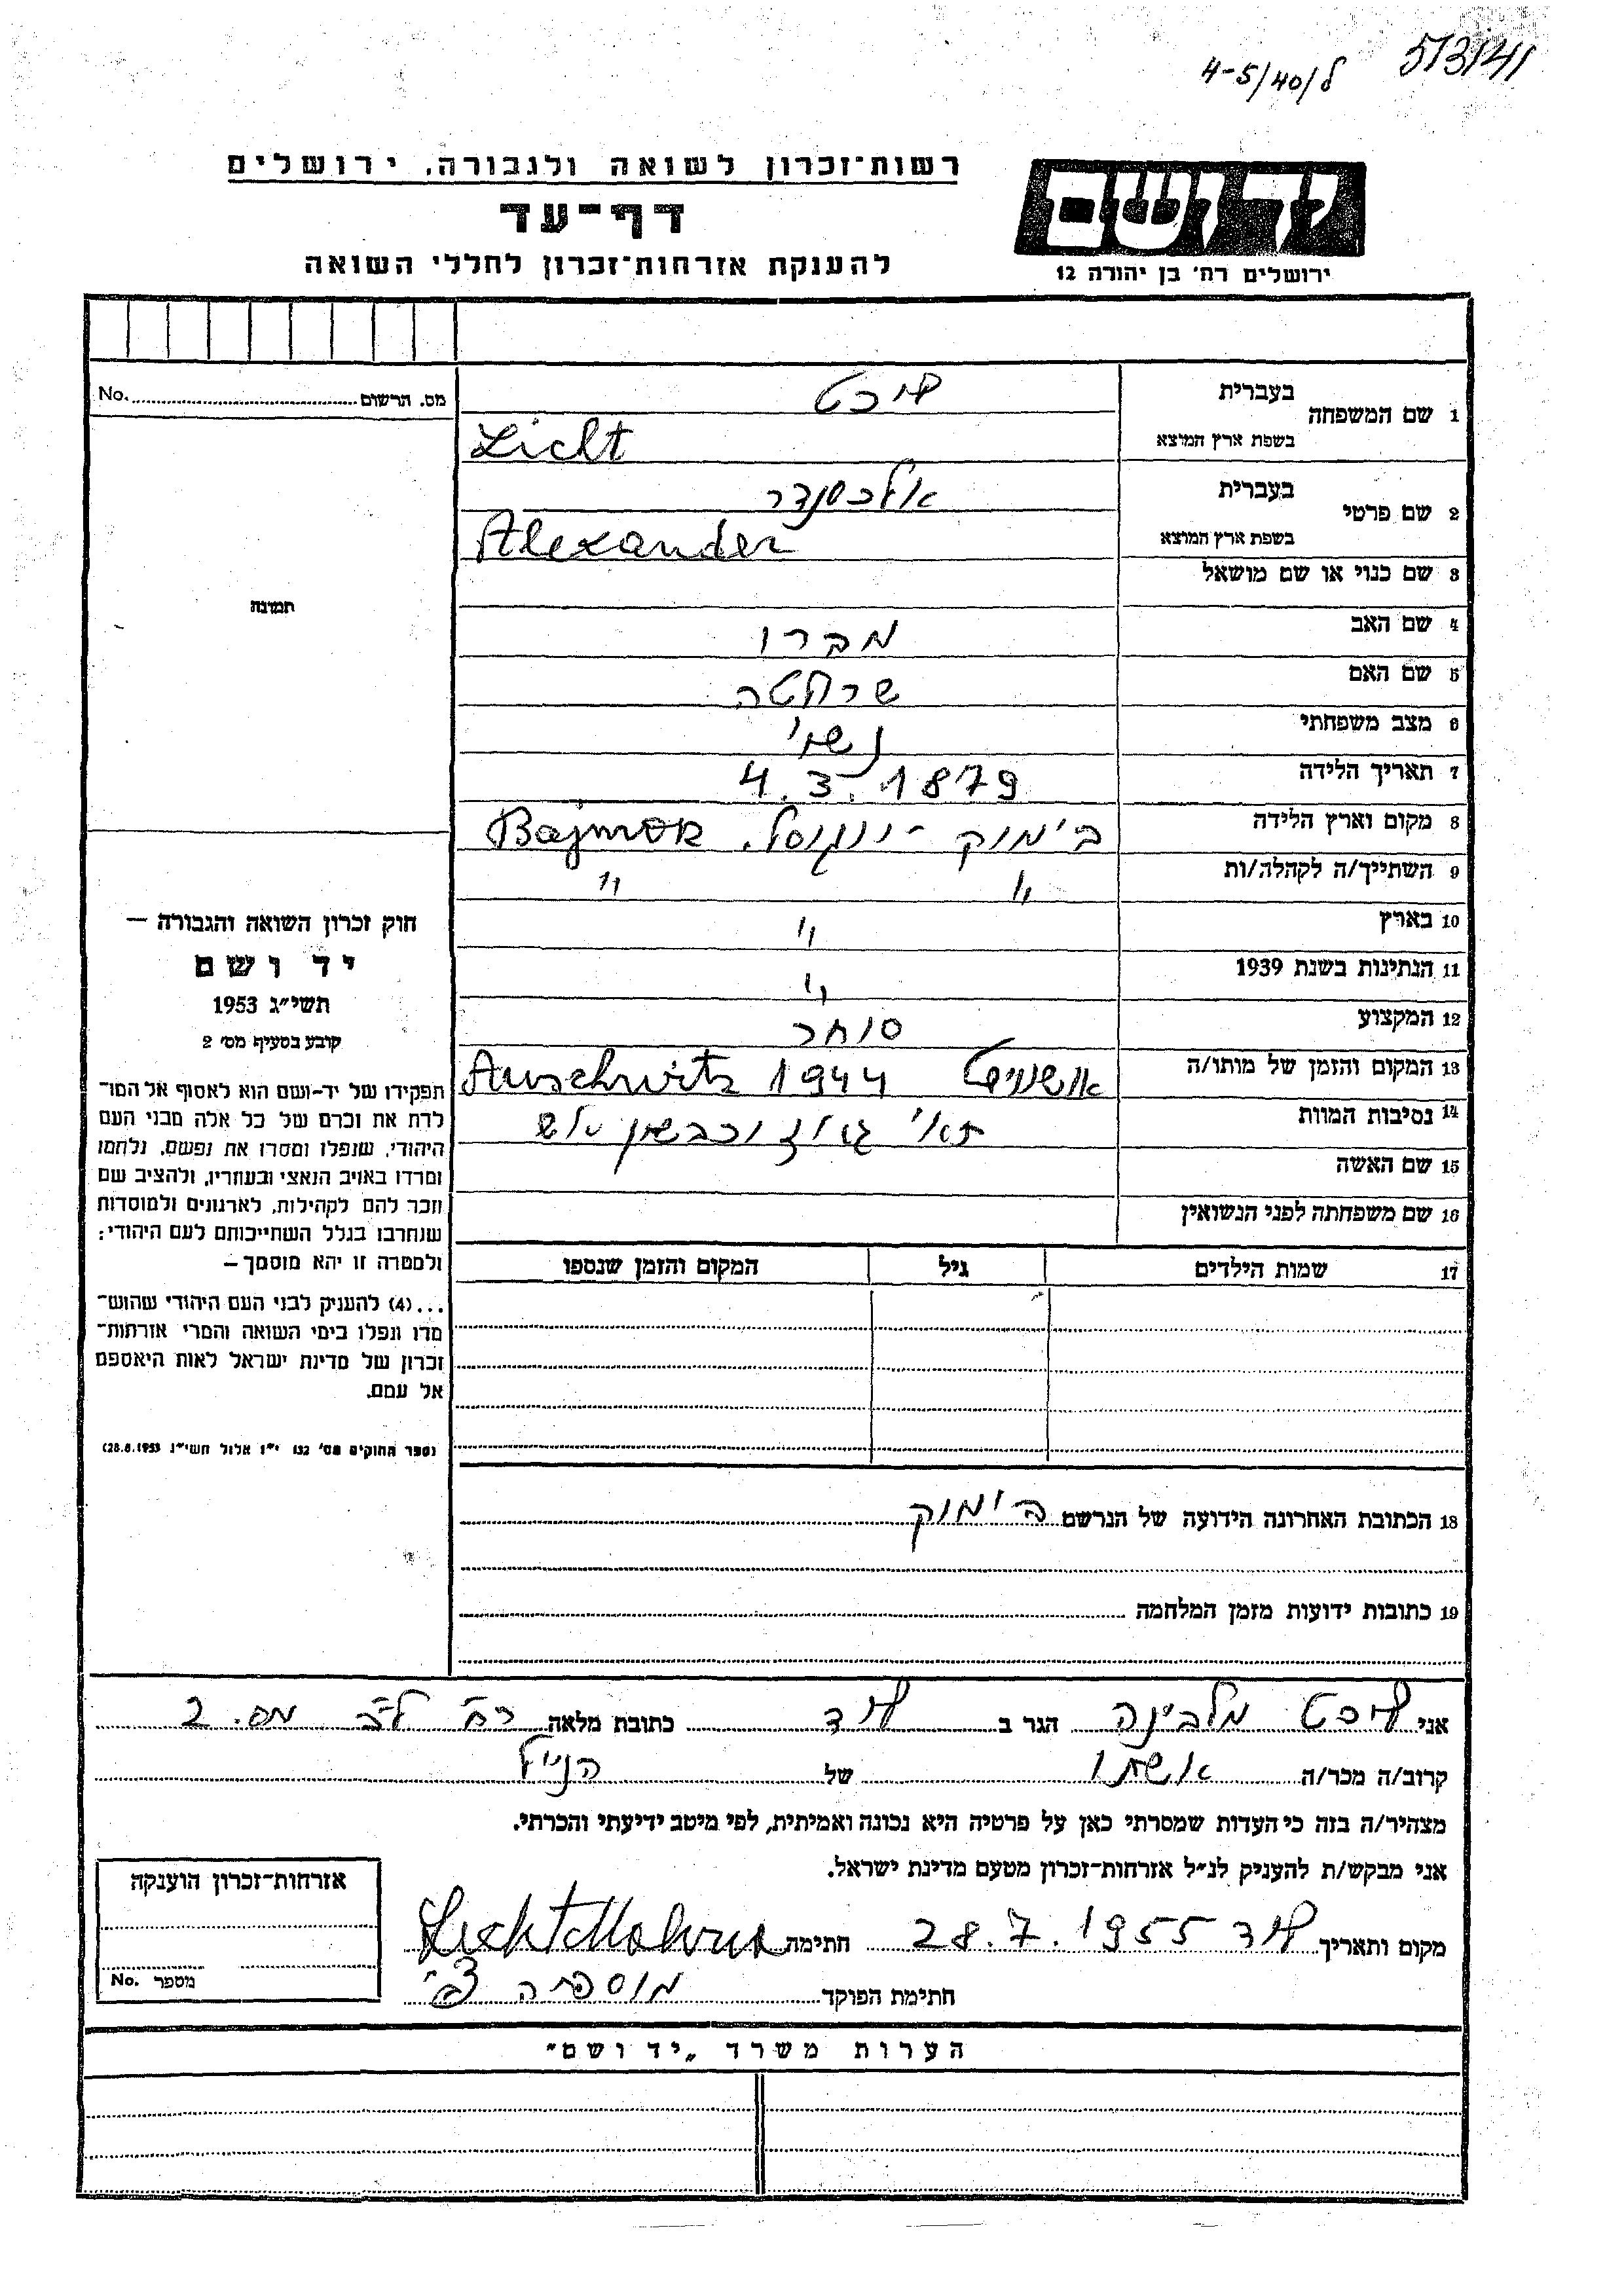 5/3/41
4-5/40/ל
רשות־זכרון לשואה ולגבורה, ירושלים
יד ושם
דף־עד
להענקת אזרחות־זכרון לחללי השואה
ירושלים רח' בן יהודה 12
No. מס. הרשום
1 שם המשפחה בעברית ליכט
בשפת ארץ המוצא Licht
2 שם פרטי בעברית אלכסנדר
בשפת ארץ המוצא Alexander
תמונה
3 שם כנוי או שם מושאל
4 שם האב
5 שם האם
6 מצב משפחתי נשוי
7 תאריך הלידה 4.3.1879
8 מקום וארץ הלידה בימוק - יוגוסל. Bajmok
9 השתייך/ה לקהלה/ות " "
10 בארץ "
11 הנתינות בשנת 1939 "
12 המקצוע סוחר
13 המקום והזמן של מותו/ה אושויץ Auschwitz 1944
14 נסיבות המוות תאי גז וכבשן אש
15 שם האשה
16 שם משפחתה לפני הנשואין
17 שמות הילדים גיל המקום והזמן שנספו
חוק זכרון השואה והגבורה —
יד ושם
תשי"ג 1953
קובע בסעיף מס' 2
תפקידו של יד-ושם הוא לאסוף אל המו־
לדת את זכרם של כל אלה מבני העם
היהודי, שנפלו ומסרו את נפשם, נלחמו
ומרדו באויב הנאצי ובעוזריו, ולהציב שם
וזכר להם לקהילות, לארגונים ולמוסדות
שנחרבו בגלל השתייכותם לעם היהודי;
ולמטרה זו יהא מוסמך —
...(4) להעניק לבני העם היהודי שהוש־
מדו ונפלו בימי השואה והמרי אזרחות־
זכרון של מדינת ישראל לאות היאספם
אל עמם.
(ספר החוקים מס' 132 י"ז אלול תשי"ג 28.8.1953)
18 הכתובת האחרונה הידועה של הנרשם בימוק
19 כתובות ידועות מזמן המלחמה
אני ליכט מלבינה הגר ב לוד כתובת מלאה רח' ל"ב מס. 2
קרוב/ה מכר/ה אשתו של הנ"ל
מצהיר/ה בזה כי העדות שמסרתי כאן על פרטיה היא נכונה ואמיתית, לפי מיטב ידיעתי והכרתי.
אני מבקש/ת להעניק לנ"ל אזרחות־זכרון מטעם מדינת ישראל.
מקום ותאריך לוד 28.7.1955 חתימה Licht Malvina
חתימת הפוקד
אזרחות־זכרון הוענקה
מספר No.
הערות משרד „יד ושם"